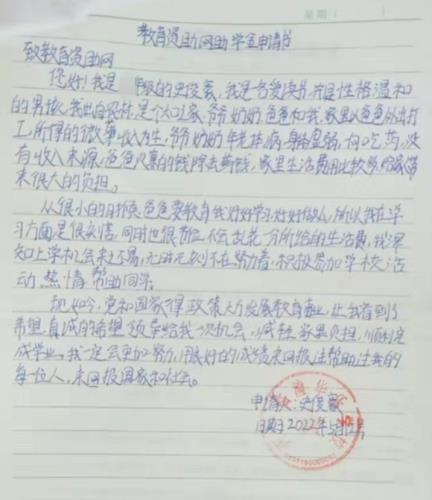 星期（ ）
教育资助网助学金申请书
致教育资助网
您好!我是 班的史俊豪,我是名爱读书,并且性格温和
的男孩,我出自农村,是个四口家,爷爷奶奶,爸爸和我,家里以爸爸外出打
工,所得的微薄收入为生,爷爷奶奶年老体病,身体虚弱,向吃药,没
有收入来源,爸爸的钱除去药钱,家里生活费用比较多给家带
来很大的负担。
从很小的时候,爸爸要教育我好好学习,好好做人,所以我在学
习方面是很来情,同时也很节俭,不会乱花一分所给的生活费,我深
知上学机会来之不易,无时无刻不在努力着,积极参加学校活
动,热情帮助同学。
现如今,党和国家政策大力发展教育事业,让我看到了
希望,真诚的希望领导给我一次机会,减轻家里负担,顺利完
成学业,我一定会更加努力,用良好的成绩来回报过帮助过我的
每一位人,来回报国家和社会。
申请人:史俊豪
日期:2022年5月12号